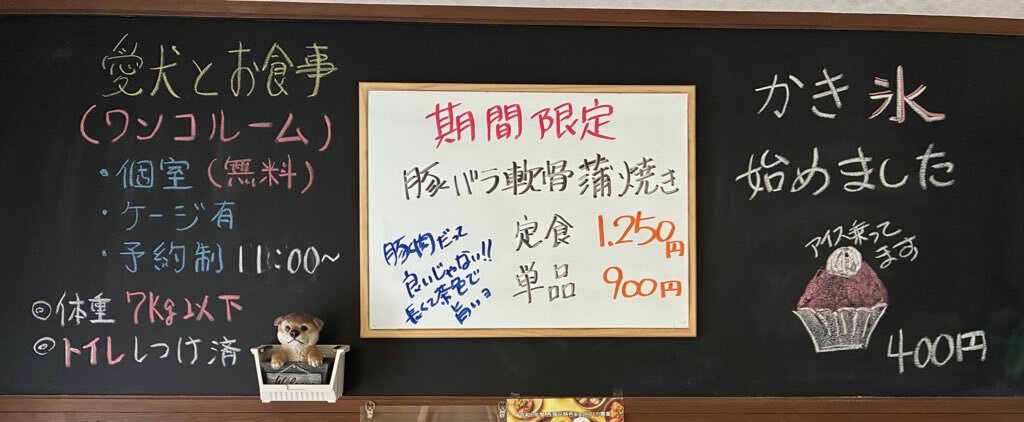 愛犬とお食事
(ワンコルーム)
・個室(無料)
・ケージ有
・予約制 11:00~
◎体重 7kg以下
◎トイレしつけ済
期間限定
豚バラ軟骨蒲焼き
定食 1.250円
単品 900円
豚肉だって
良いじゃない!!
長くて茶色で
旨いョ
かき氷
始めました
アイス乗って
ます
400円